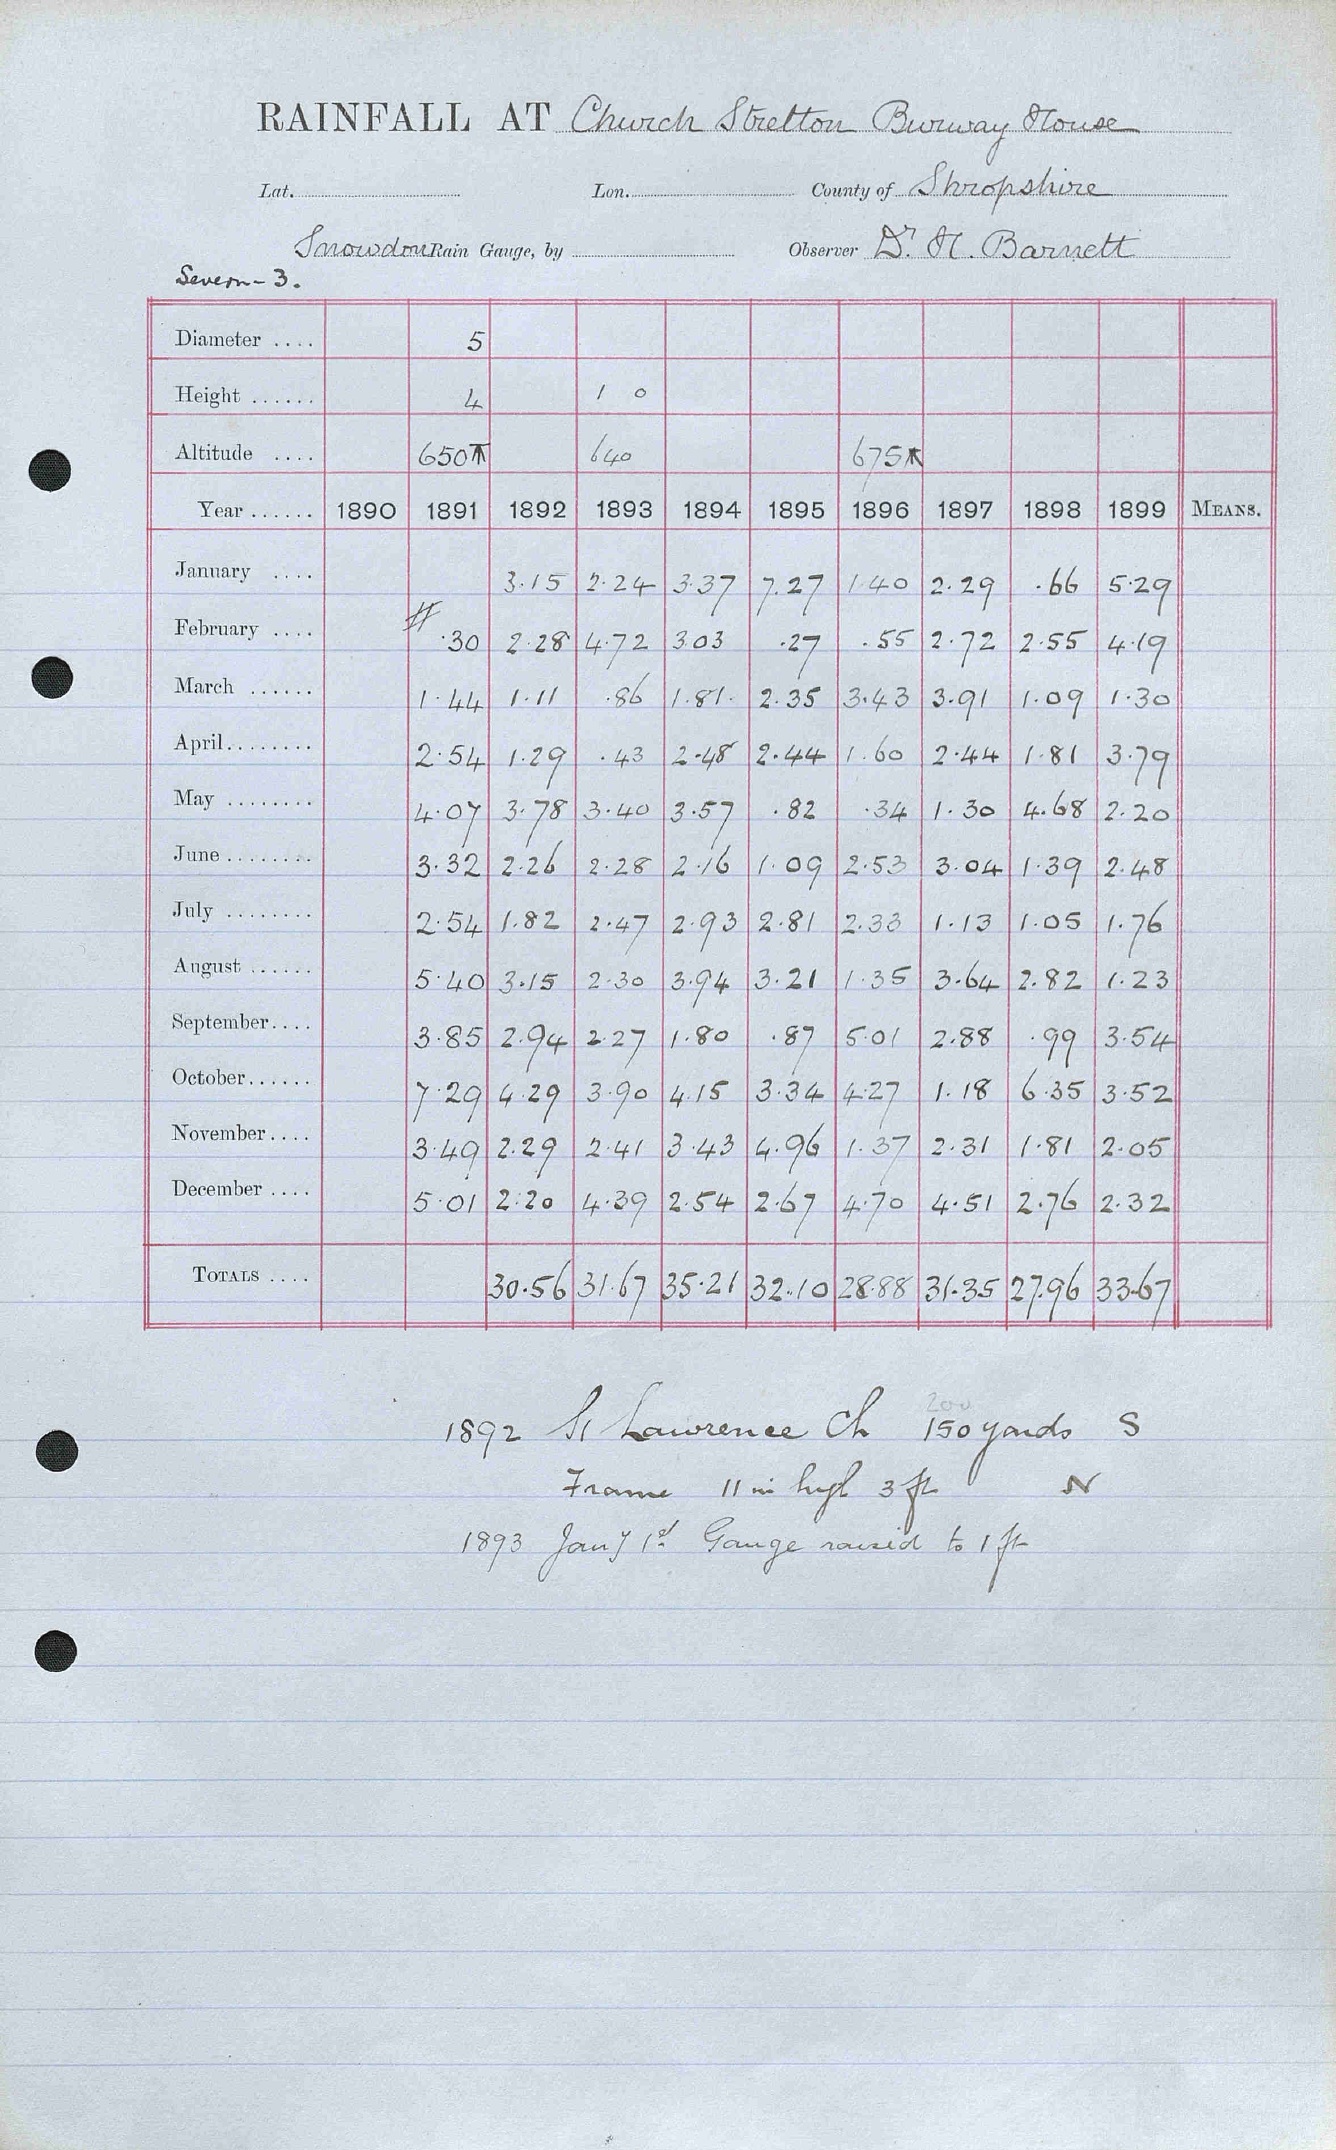 RAINFALL AT Church Stretton Burway House
Lat. Lon. County of Shropshire
Snowdon Rain Gauge, by Observer Dr. H. Barnett
Severn-3.
Diameter .... 5
Height ...... 4 1 0
Altitude .... 650 640 675
Year ...... 1890 1891 1892 1893 1894 1895 1896 1897 1898 1899 MEANS.
January .... 3.15 2.24 3.37 7.27 1.40 2.29 .66 5.29
February .... # .30 2.28 4.72 3.03 .27 .55 2.72 2.55 4.19
March ...... 1.44 1.11 .86 1.81. 2.35 3.43 3.91 1.09 1.30
April........ 2.54 1.29 .43 2.48 2.44 1.60 2.44 1.81 3.79
May ........ 4.07 3.78 3.40 3.57 .82 .34 1.30 4.68 2.20
June ........ 3.32 2.26 2.28 2.16 1.09 2.53 3.04 1.39 2.48
July ........ 2.54 1.82 2.47 2.93 2.81 2.33 1.13 1.05 1.76
August ...... 5.40 3.15 2.30 3.94 3.21 1.35 3.64 2.82 1.23
September.... 3.85 2.94 2.27 1.80 .87 5.01 2.88 .99 3.54
October...... 7.29 4.29 3.90 4.15 3.34 4.27 1.18 6.35 3.52
November.... 3.49 2.29 2.41 3.43 4.96 1.37 2.31 1.81 2.05
December .... 5.01 2.20 4.39 2.54 2.67 4.70 4.51 2.76 2.32
TOTALS .... 30.56 31.67 35.21 32.10 28.88 31.35 27.96 33.67
200
1892 St Lawrence Ch 150 yards S
Frame 11 in high 3 ft N
1893 Jany 1st Gauge raised to 1 ft